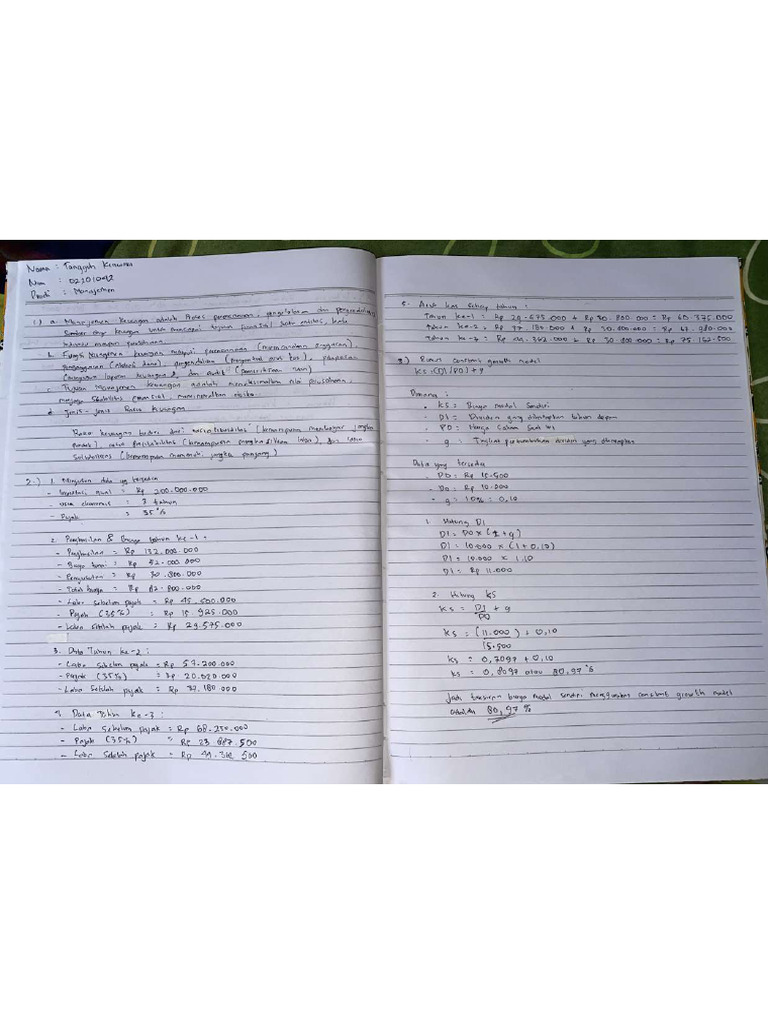 Nama : Tangguh
Nim : 02101092
Prodi : Manajemen
1.) a. Manajemen keuangan adalah Proses perencanaan, pengelolaan dan pengendalian
Sumber daya keuangan untuk mencapai tujuan finansial suatu entitas, baik
individu maupun perusahaan.
b. Fungsi Manajemen keuangan meliputi perencanaan (merencanakan anggaran),
penganggaran (alokasi dana), pengendalian (mengontrol arus kas), pelaporan
(menyusun laporan keuangan), dan audit (pemeriksaan
c. Tujuan Manajemen keuangan adalah memaksimalkan nilai perusahaan,
menjaga Stabilitas finansial, meminimalkan risiko.
d. Jenis-jenis Rasio keuangan.
Rasio keuangan terdiri dari rasio likuiditas (kemampuan membayar jangka
pendek), rasio Profitabilitas (kemampuan menghasilkan laba), dan rasio
Solvabilitas (kemampuan memenuhi jangka panjang)
2.) 1. data yg
- Investasi awal = Rp 200.000.000
- usia ekonomis = 3 tahun
- Pajak = 35%
2. Penghasilan & Biaya tahun ke-1 :
- Penghasilan = Rp 132.000.000
- Biaya tunai = Rp 52.000.000
- Penyusutan = Rp 30.800.000
- Total biaya = Rp 82.800.000
- Laba sebelum pajak = Rp 45.500.000
- Pajak (35%) = Rp 15.925.000
- Laba setelah pajak = Rp 29.575.000
3. Data Tahun ke-2 :
- Laba Sebelum pajak = Rp 57.200.000
- Pajak (35%) = Rp 20.020.000
- Laba Setelah pajak = Rp 37.180.000
4. Data Tahun ke-3 :
- Laba Sebelum pajak = Rp 68.250.000
- Pajak (35%) = Rp 23.887.500
- Laba Setelah pajak = Rp 44.362.500
5. Arus kas Setiap tahun :
Tahun ke-1 = Rp 29.575.000 + Rp 30.800.000 = Rp 60.375.000
Tahun ke-2 = Rp 37.180.000 + Rp 30.800.000 = Rp 67.980.000
Tahun ke-3 = Rp 44.362.000 + Rp 30.800.000 = Rp 75.162.500
3) Rumus constant growth model
KS = (D1/P0) + g
Dimana :
- KS = Biaya modal Sendiri
- D1 = Dividen yang diharapkan tahun depan
- P0 = Harga Saham Saat ini
- g : Tingkat pertumbuhan dividen yang diharapkan
Data yang tersedia
- P0 = Rp 15.500
- D0 = Rp 10.000
- g = 10% = 0,10
1. Hitung D1
D1 = D0 x (1 + g)
D1 = 10.000 x (1 + 0,10)
D1 = 10.000 x 1,10
D1 = Rp 11.000
2. Hitung KS
KS = D1/P0 + g
KS = (11.000)/15.500 + 0,10
KS = 0,7097 + 0,10
KS = 0,8097 atau 80,97%
Jadi taksiran biaya modal sendiri menggunakan constant growth model
adalah 80,97%